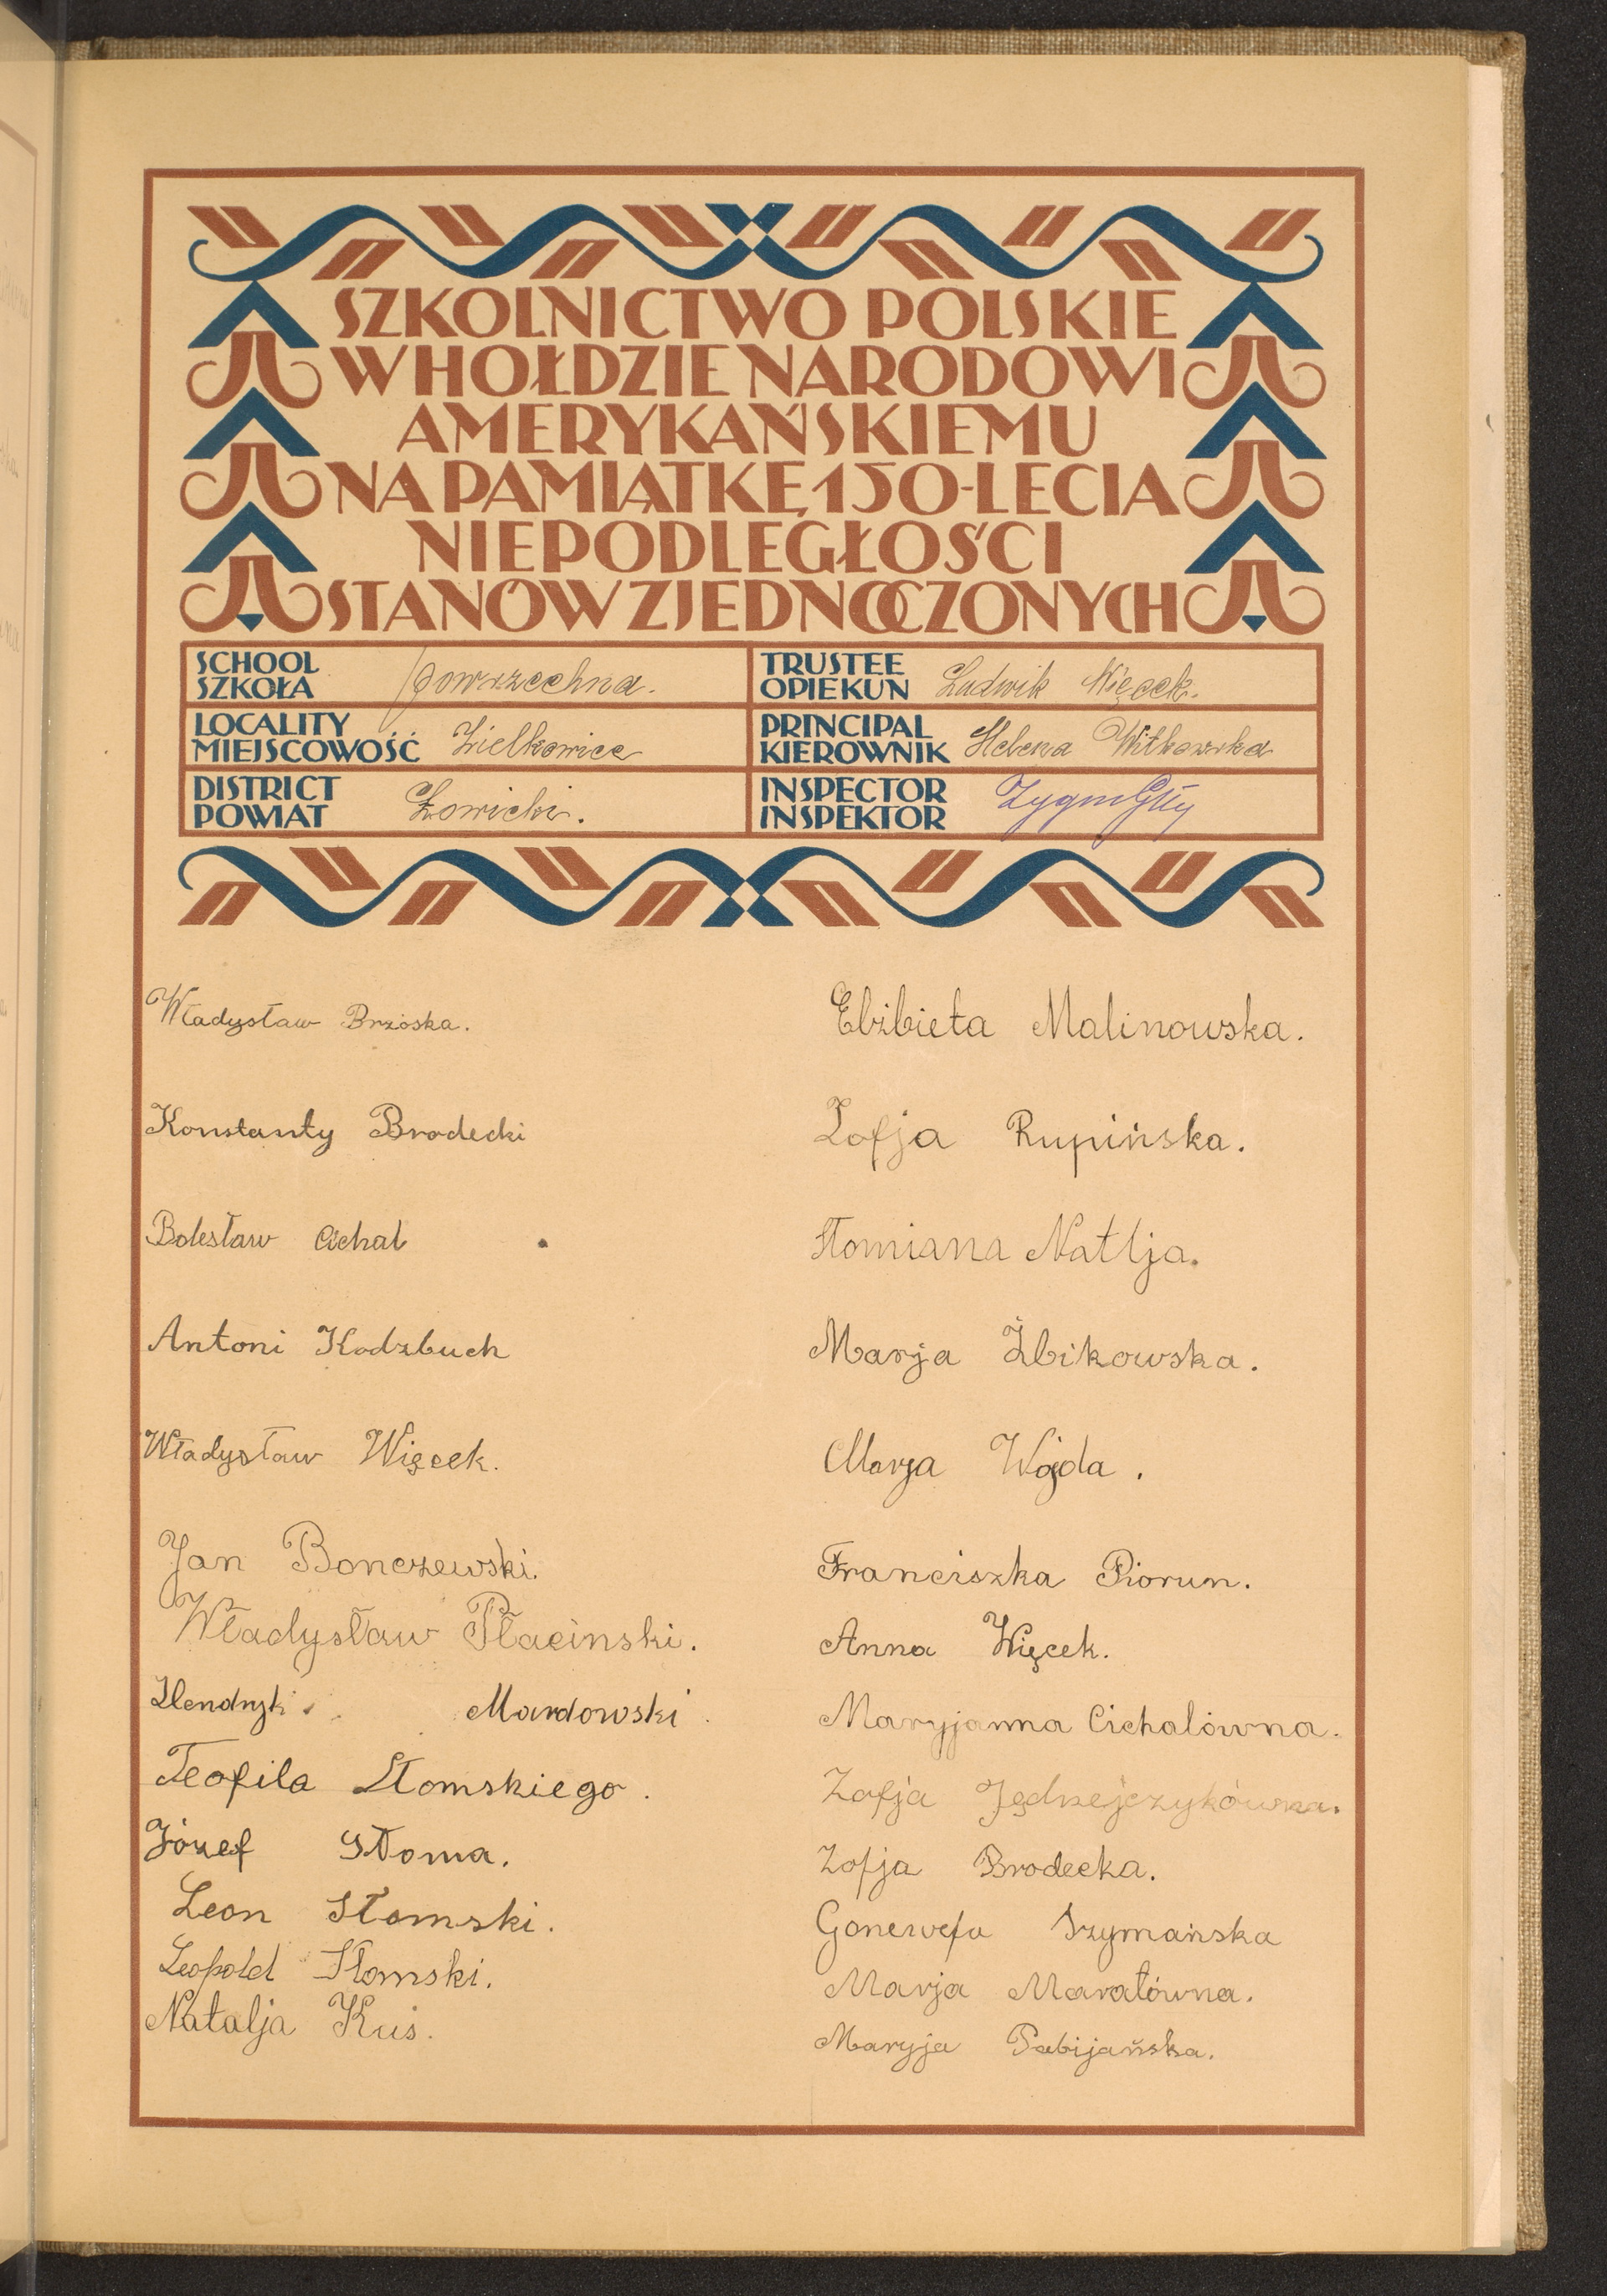 SZKOLNICTWO POLSKIE
W HOŁDZIE NARODOWI
AMERYKAŃSKIEMU
NA PAMIĄTKĘ 150-LECIA
NIEPODLEGŁOŚCI
STANÓW ZJEDNOCZONYCH
SCHOOL
SZKOŁA powszechna.
TRUSTEE
OPIEKUN Ludwik Więcek.
LOCALITY
MIEJSCOWOŚĆ Zielkowice
PRINCIPAL
KIEROWNIK Helena Witkowska
DISTRICT
POWIAT Łowicki.
INSPECTOR
INSPEKTOR Zygm
Władysław Brzóska.
Konstanty Brodecki
Bolesław Cichal
Antoni Kodzbuch
Władysław Więcek.
Jan Bonczewski.
Władysław Płacinski.
Hendryk Mardowski.
Teofila Słomskiego.
Józef Słoma.
Leon Słomski.
Leopold Słomski.
Natalja Kuś.
Elżbieta Malinowska.
Zofja Rupińska.
Słomiana Natlja.
Marja Żbikowska.
Marja Wojda.
Franciszka Piorun.
Anna Więcek.
Maryjanna Cichalówna.
Zofja Jędrzejczykówna.
Zofja Brodecka.
Gonewefa Szymańska
Marja Maratówna.
Maryja Pabijańska.